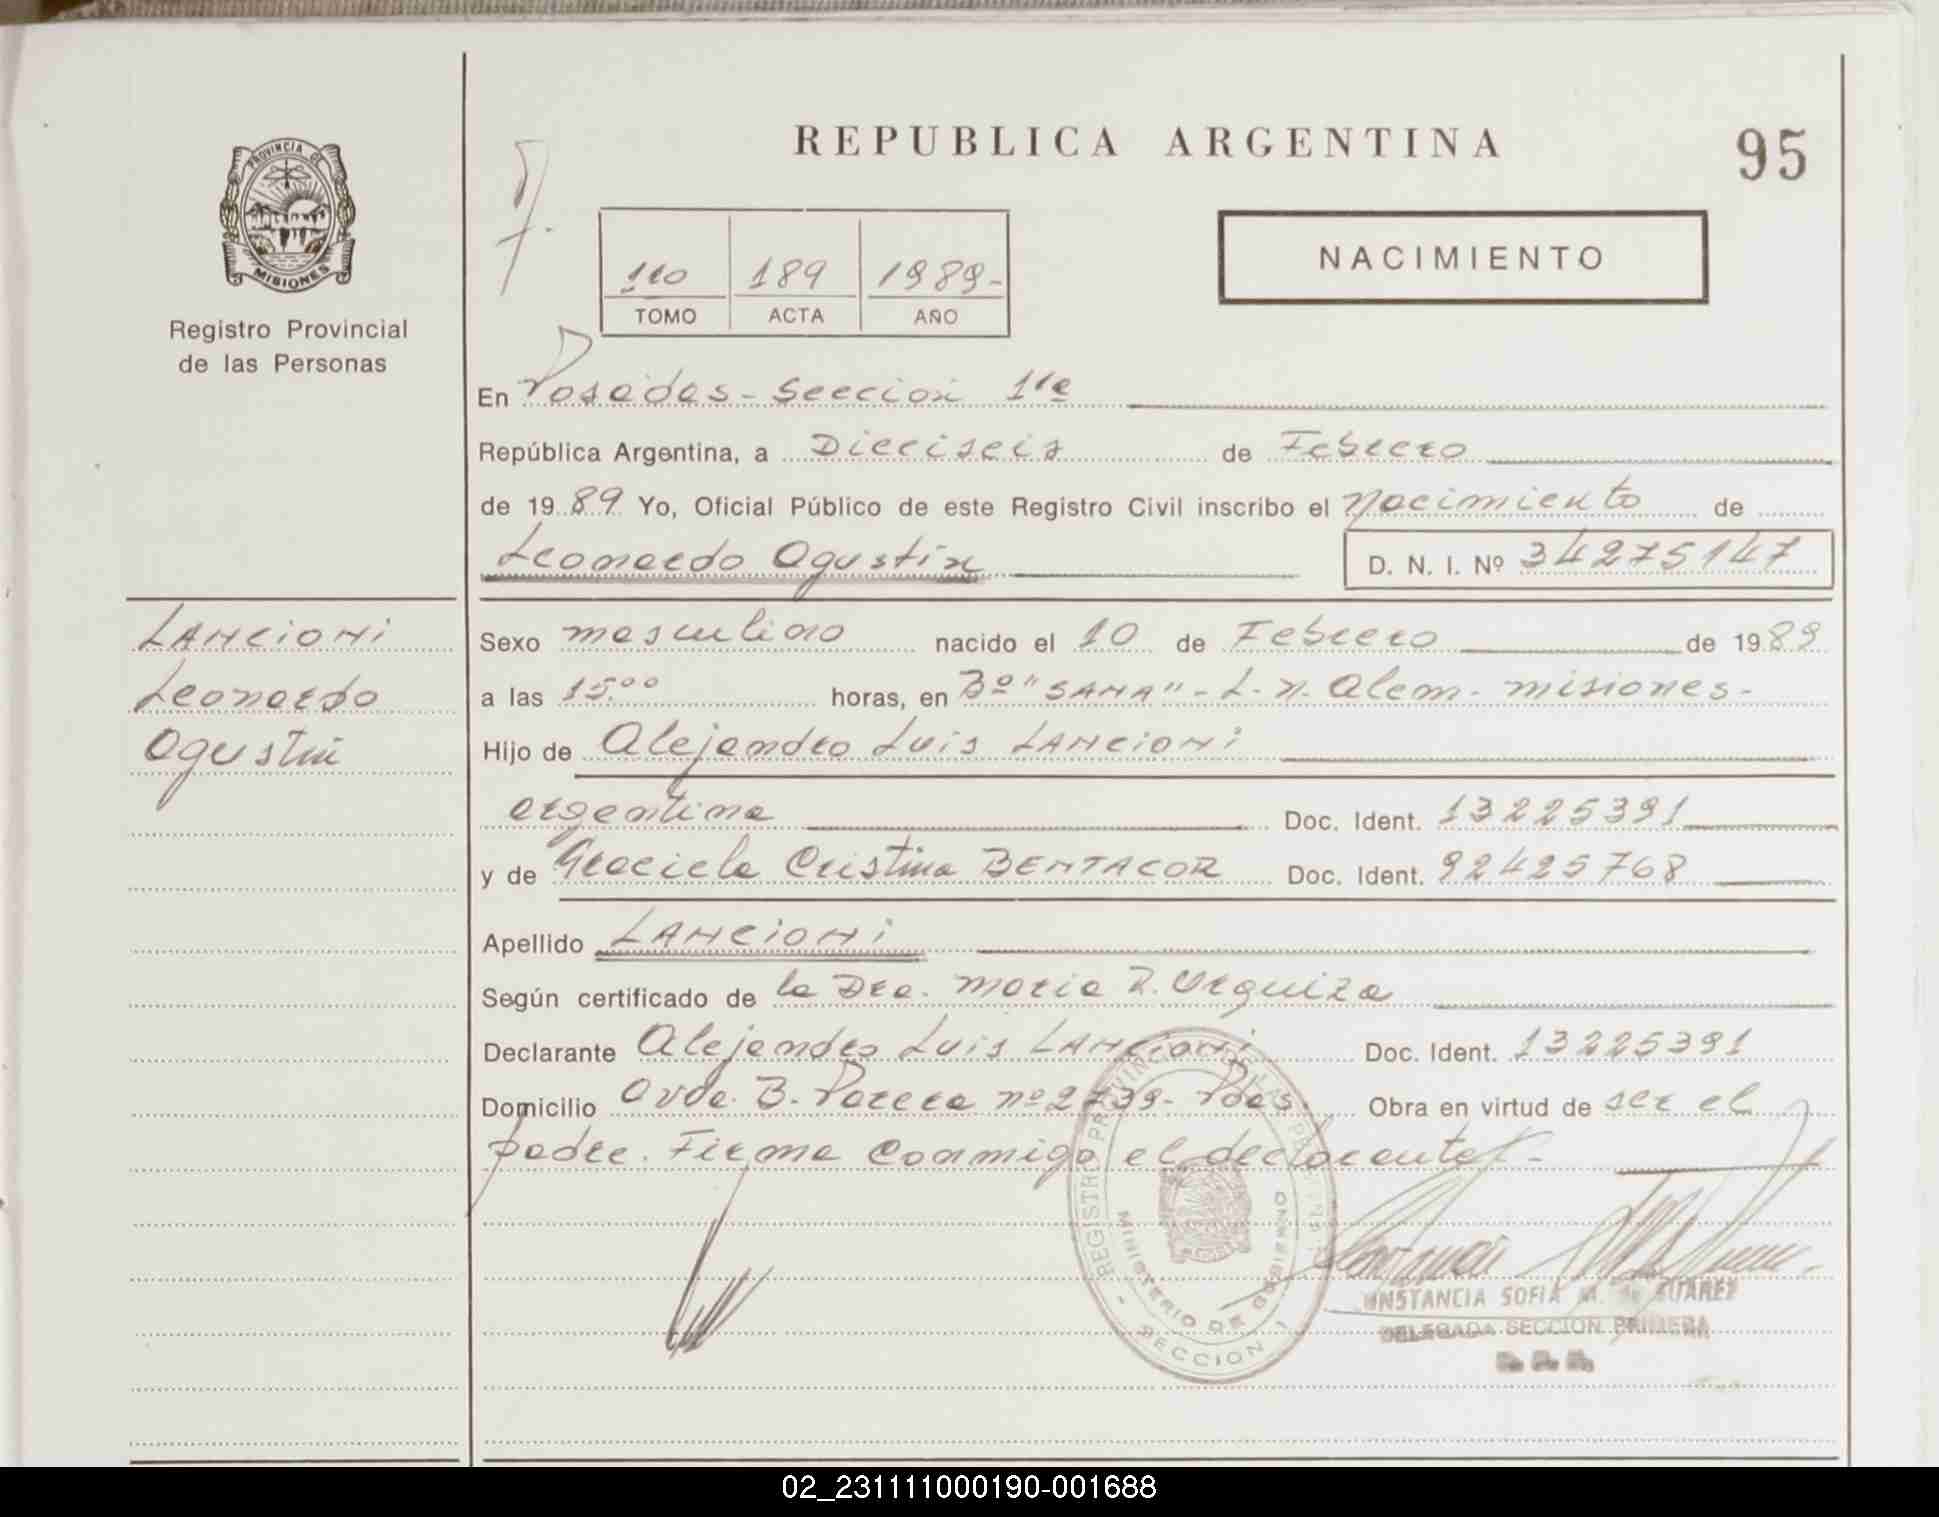 REPUBLICA ARGENTINA
95
PROVINCIA DE
MISIONES
Registro Provincial
de las Personas
1ro 189 1989-
TOMO ACTA AÑO
NACIMIENTO
En Posadas - Sección 1ra
República Argentina, a Dieciseis de Febrero
de 1989 Yo, Oficial Público de este Registro Civil inscribo el nacimiento de
Leonardo Agustín D. N. I. Nº 34275147
LANCIONI
Leonardo
Agustín
Sexo masculino nacido el 10 de Febrero de 1989
a las 15.00 horas, en Bº "SANA" - L. N. Alem - misiones -
Hijo de Alejandro Luis LANCIONI
argentina Doc. Ident. 13225391
y de Graciela Cristina BENTACOR Doc. Ident. 92425768
Apellido LANCIONI
Según certificado de la Dra. María R. Urquiza
Declarante Alejandro Luis LANCIONI Doc. Ident. 13225391
Domicilio Avda. B. Parera nº 2739 - Pdas. Obra en virtud de ser el
padre. Firma conmigo el declarante -
REGISTRO PROVINCIAL DE LAS PERSONAS
MINISTERIO DE GOBIERNO
- SECCION 1
CONSTANCIA SOFIA M. de SUAREZ
DELEGADA SECCION PRIMERA
02_231111000190-001688